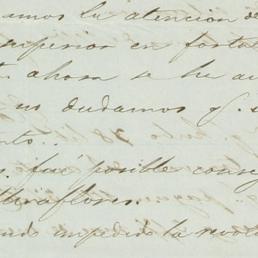 amos la atención de
superior en forta
ahora se ha au
no dudamos q.
nto..
fué posible conse
Miraflores.
impedido la